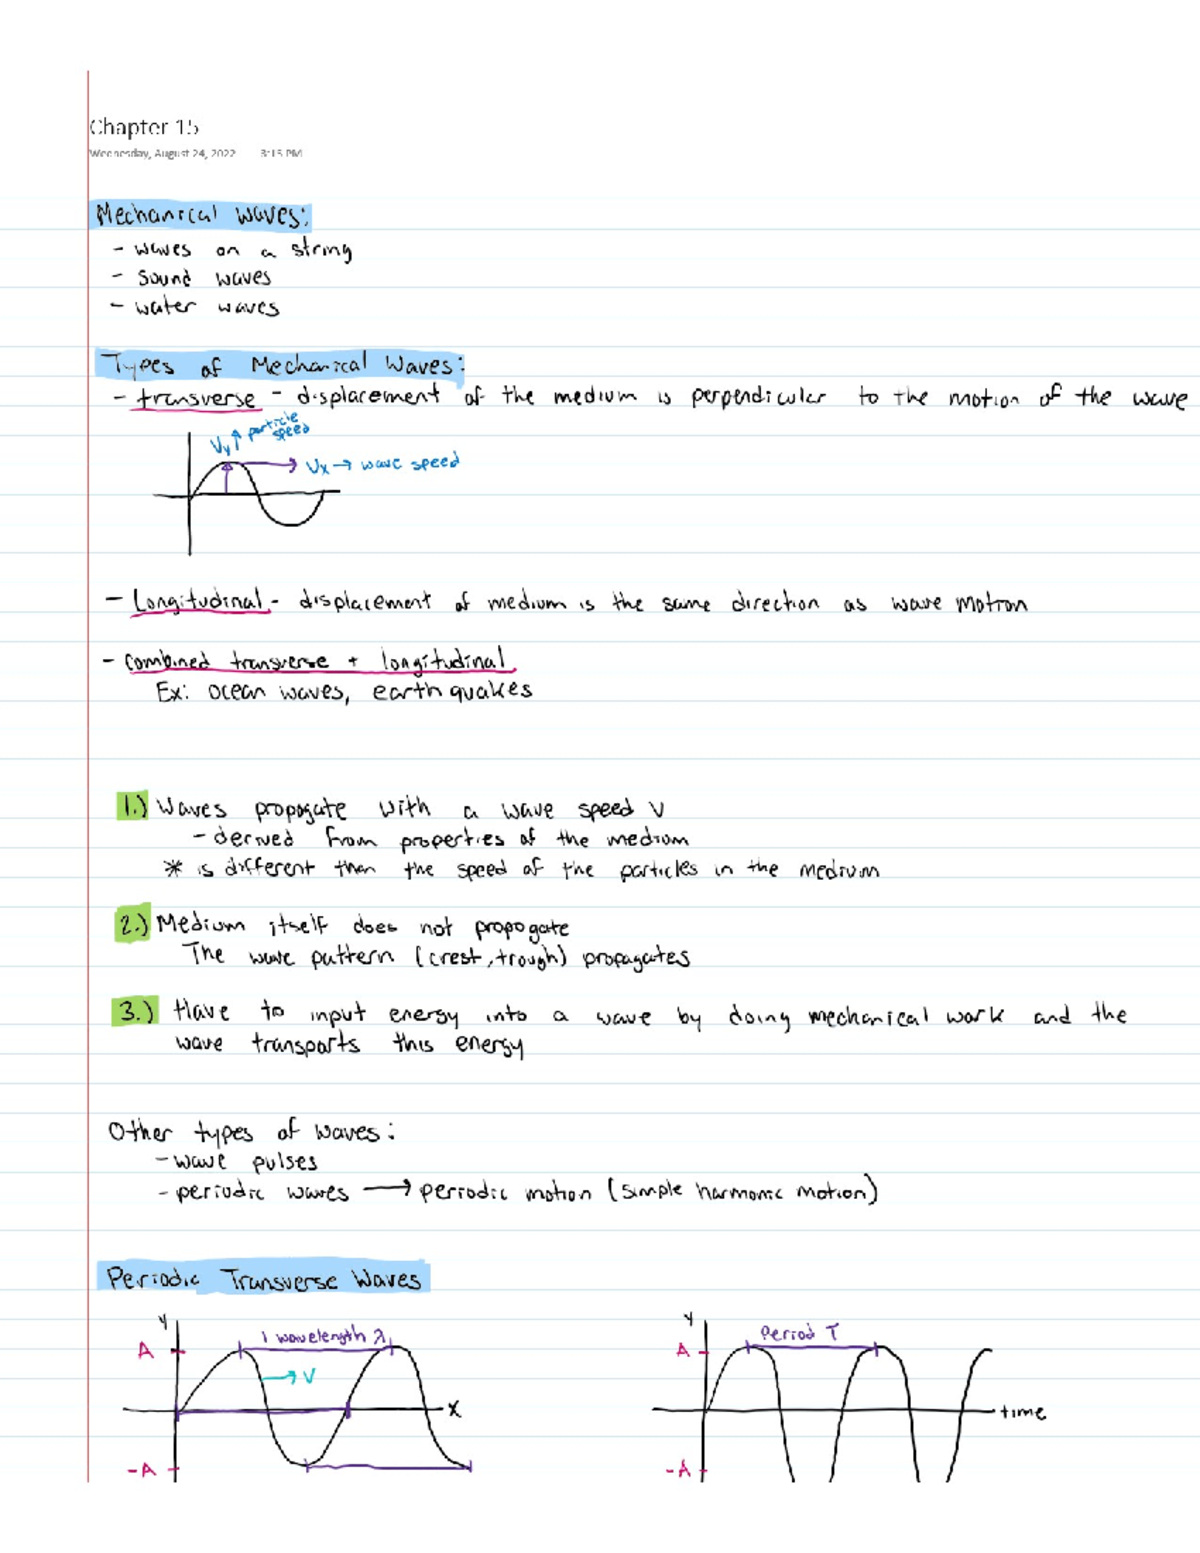 Chapter 15
Wednesday, August 24, 2022 3:15 PM
Mechanical waves:
- waves on a string
- sound waves
- water waves
Types of Mechanical Waves:
- transverse - displacement of the medium is perpendicular to the motion of the wave
Vy particle speed
Vx → wave speed
- Longitudinal - displacement of medium is the same direction as wave motion
- combined transverse + longitudinal
Ex: ocean waves, earthquakes
1.) Waves propogate with a wave speed v
- derived from properties of the medium
* is different than the speed of the particles in the medium
2.) Medium itself does not propogate
The wave pattern (crest, trough) propagates
3.) Have to input energy into a wave by doing mechanical work and the
wave transports this energy
Other types of waves:
- wave pulses
- periodic waves → periodic motion (simple harmonic motion)
Periodic Transverse Waves
y
1 wavelength λ
A
→ V
x
-A
y
Period T
A
time
-A